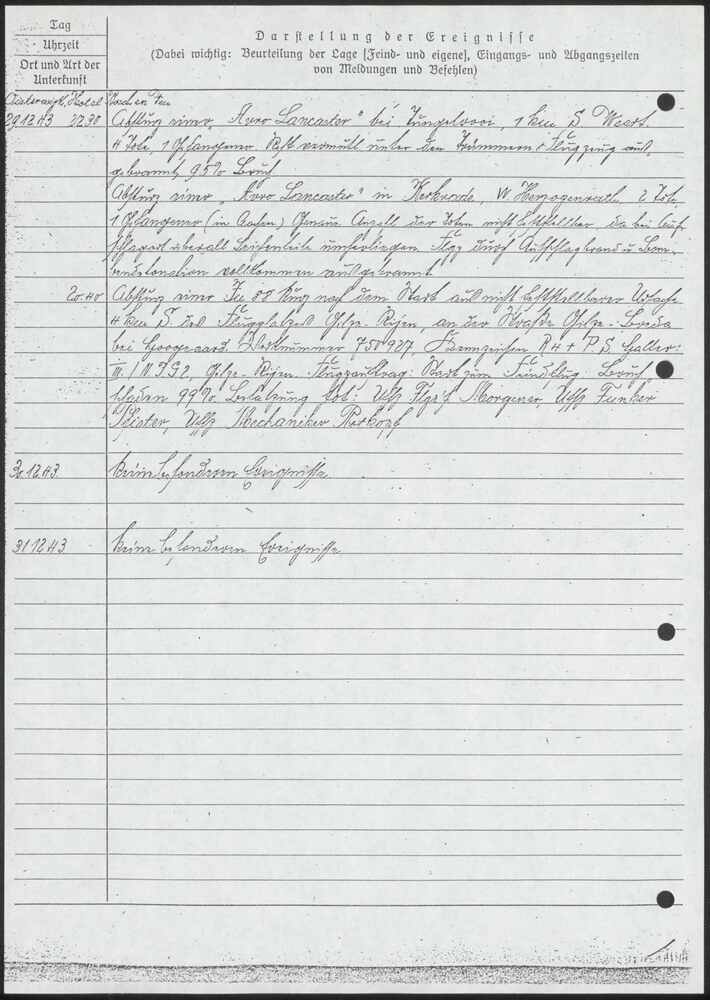 Tag
Uhrzeit
Ort und Art der
Unterkunft
Darstellung der Ereignisse
(Dabei wichtig: Beurteilung der Lage [Feind- und eigene], Eingangs- und Abgangszeiten
von Meldungen und Befehlen)
29.12.43 22.30 Absturz einer „Avro Lancaster" bei Tungelrooi, 1 km S Weert.
4 Tote, 1 Gefangener. Rest vermutl. unter den Trümmern. Flugzeug aus-
gebrannt, 95% Bruch
Absturz einer „Avro Lancaster" in Kerkrade, W Herzogenrath, 2 Tote,
1 Gefangener (in Aachen) Genaue Anzahl der Toten nicht feststellbar, da bei Auf-
schlagort überall Leichenteile umherliegen. Flgz. durch Aufschlagbrand u. Bom-
bendetonation vollkommen ausgebrannt
20.40 Absturz einer Ju 88 kurz nach dem Start aus nicht feststellbarer Ursache
4 km S des Flugplatzes Gilze-Rijen, an der Straße Gilze-Breda
bei Werknummer 750927, Kennzeichen R4 + P.S. Halter:
III./N.J.G2, Gilze-Rijen. Flugauftrag: Start zum Feindflug. Bruch-
schaden 99%. Besatzung tot: Uffz. Flgzf. Morgener, Uffz. Funker
Uffz. Mechaniker
30.12.43 keine besonderen Ereignisse
31.12.43 keine besonderen Ereignisse